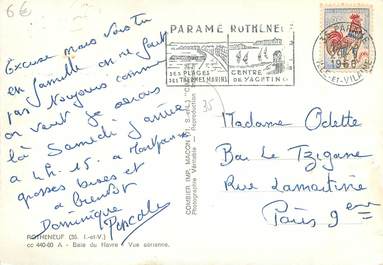 6€
PARAMÉ ROTHENEUF
SES PLAGES
SES THERMES MARINS
CENTRE
DE YACHTING
35 PARAMÉ
1966
ILLE-ET-VILAINE
Excuse mais vois tu
en famille on ne fait
pas toujours comme
on veut je serais
là Samedi j'arrive
à 4h.15. à Montparnasse
grosses bises et
à bientôt
Dominique
Pascale
35
Madame Odette
Bar Le Tzigane
Rue Lamartine
Paris 9eme
COMBIER IMP. MACON
Photographie Véritable - Reproduction
ROTHENEUF (35. I.-et-V.)
cc 440-00 A - Baie du Havre - Vue aérienne.